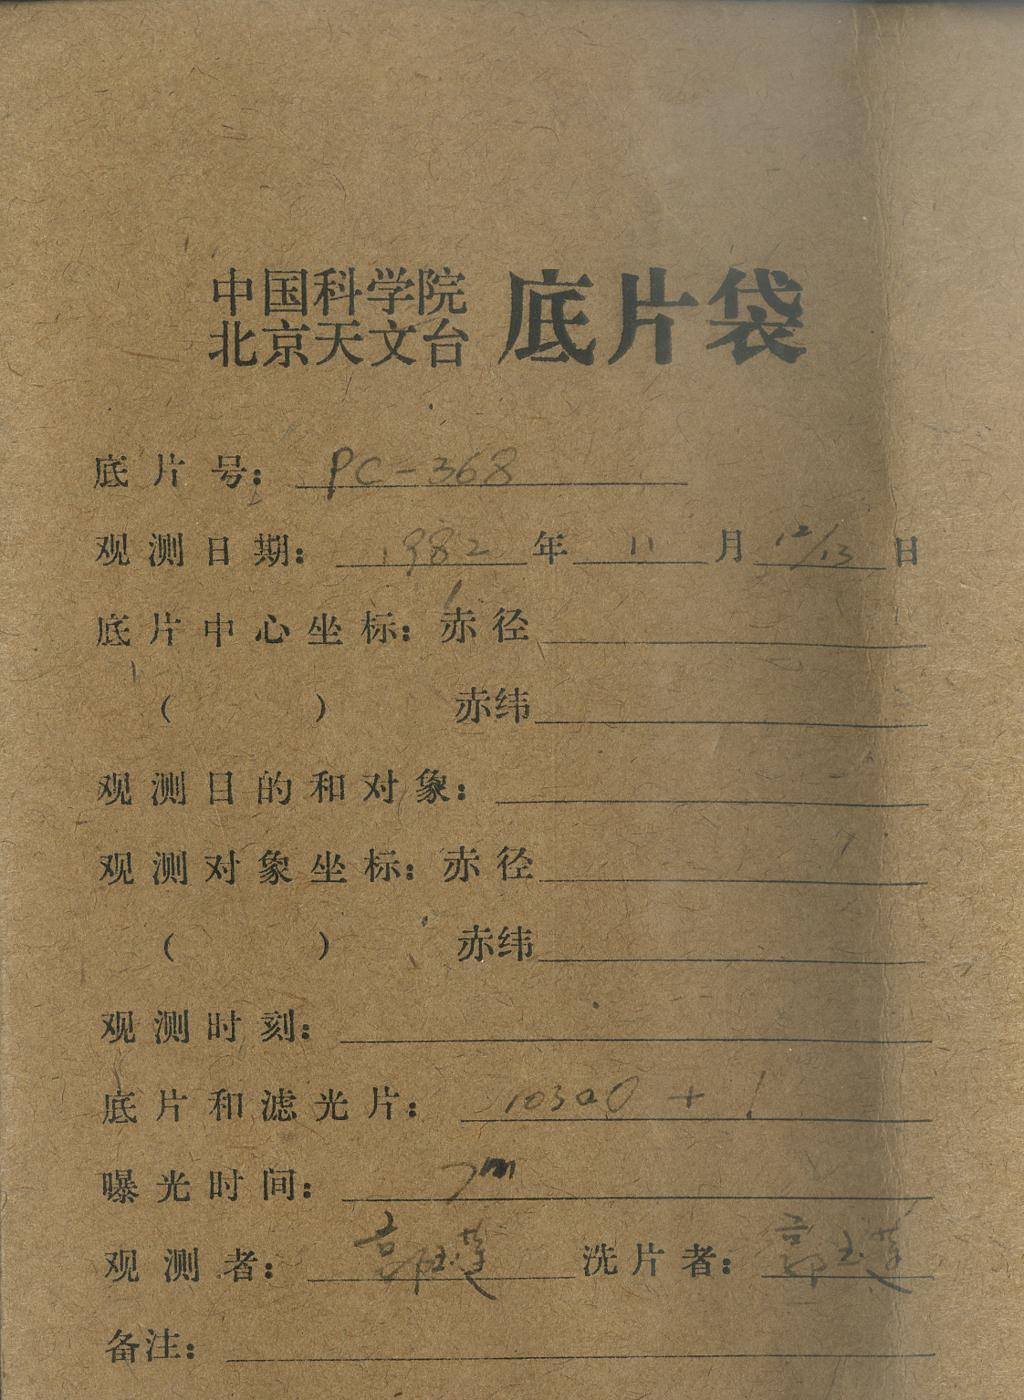 中国科学院
北京天文台
底片袋
底片号: PC-368
观测日期: 1982 年 11 月 12/13 日
底片中心坐标: 赤径
( ) 赤纬
观测目的和对象:
观测对象坐标: 赤径
( ) 赤纬
观测时刻:
底片和滤光片: 103aO +
曝光时间: 7m
观测者: 洗片者: 郭玉莲
备注: